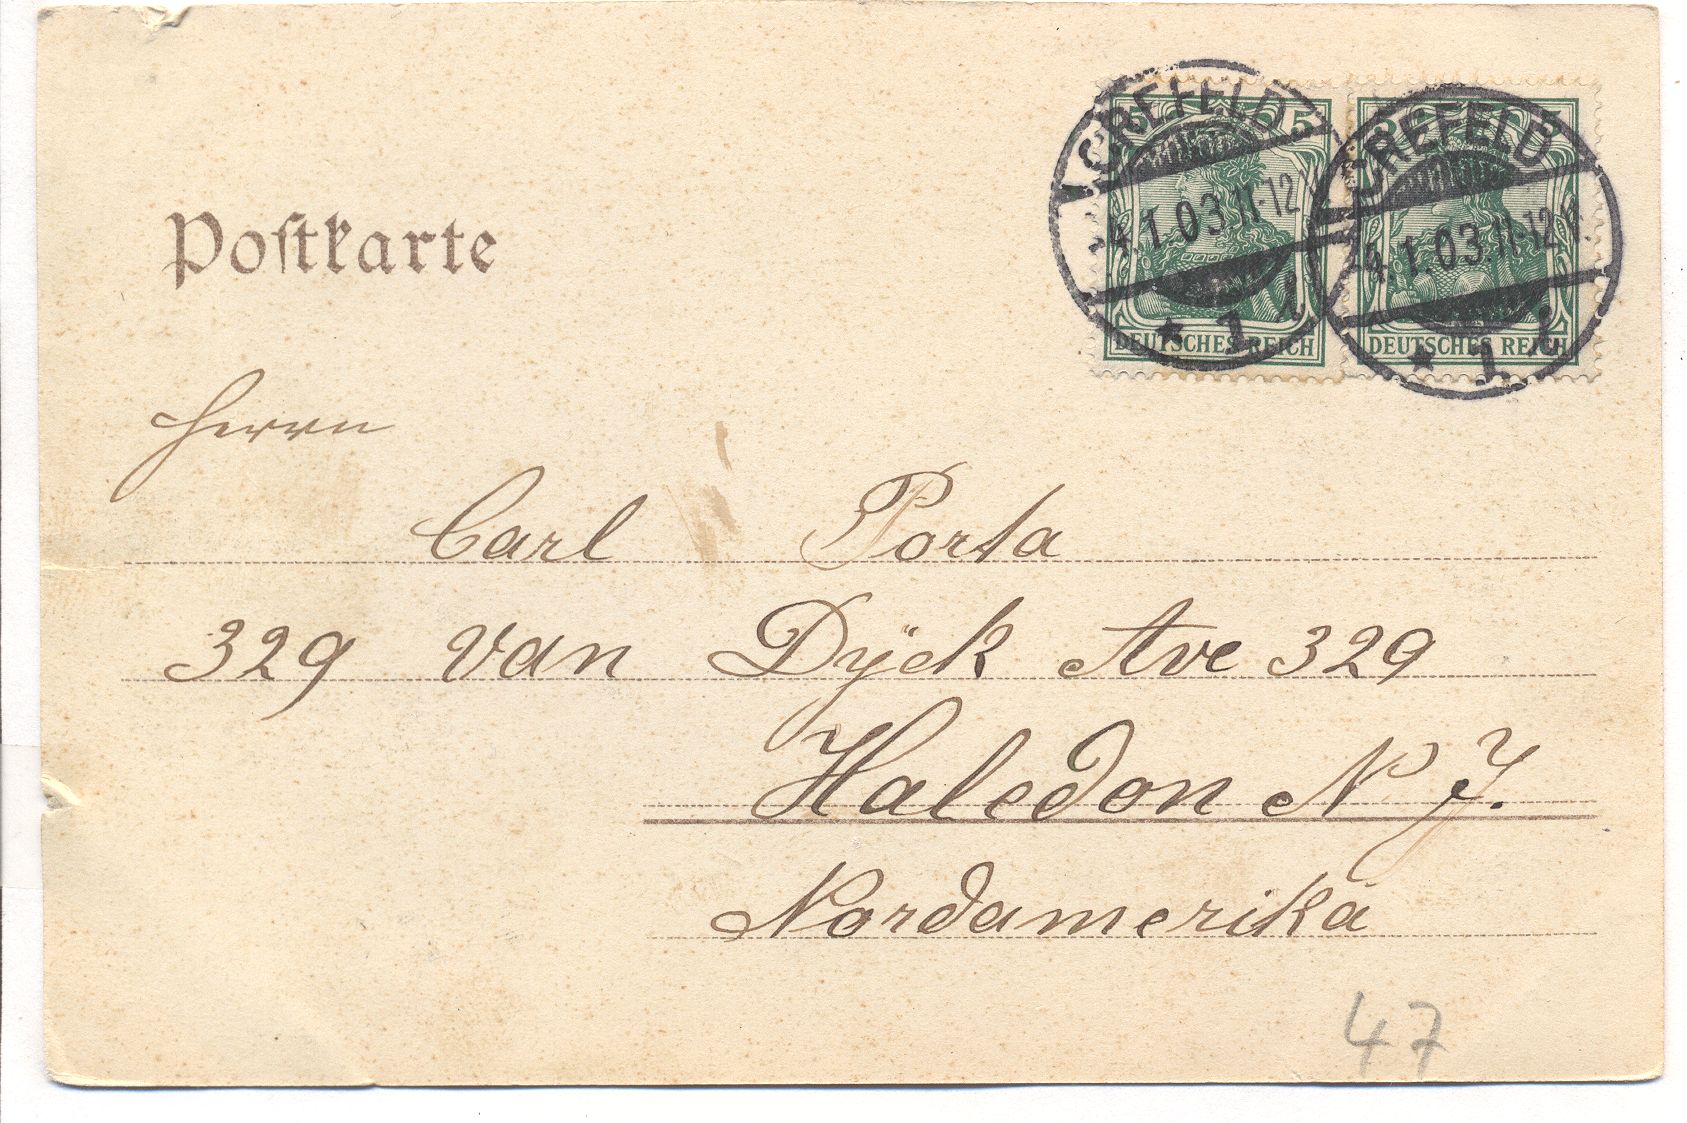 Poſtkarte
CREFELD
4.1.03.11-12
* 1
CREFELD
4.1.03.11-12 V.
* 1
5 5
DEUTSCHES REICH
DEUTSCHES REICH
Herrn
Carl Porta
329 Van Dÿck Ave 329
Haledon N. J.
Nordamerika
47